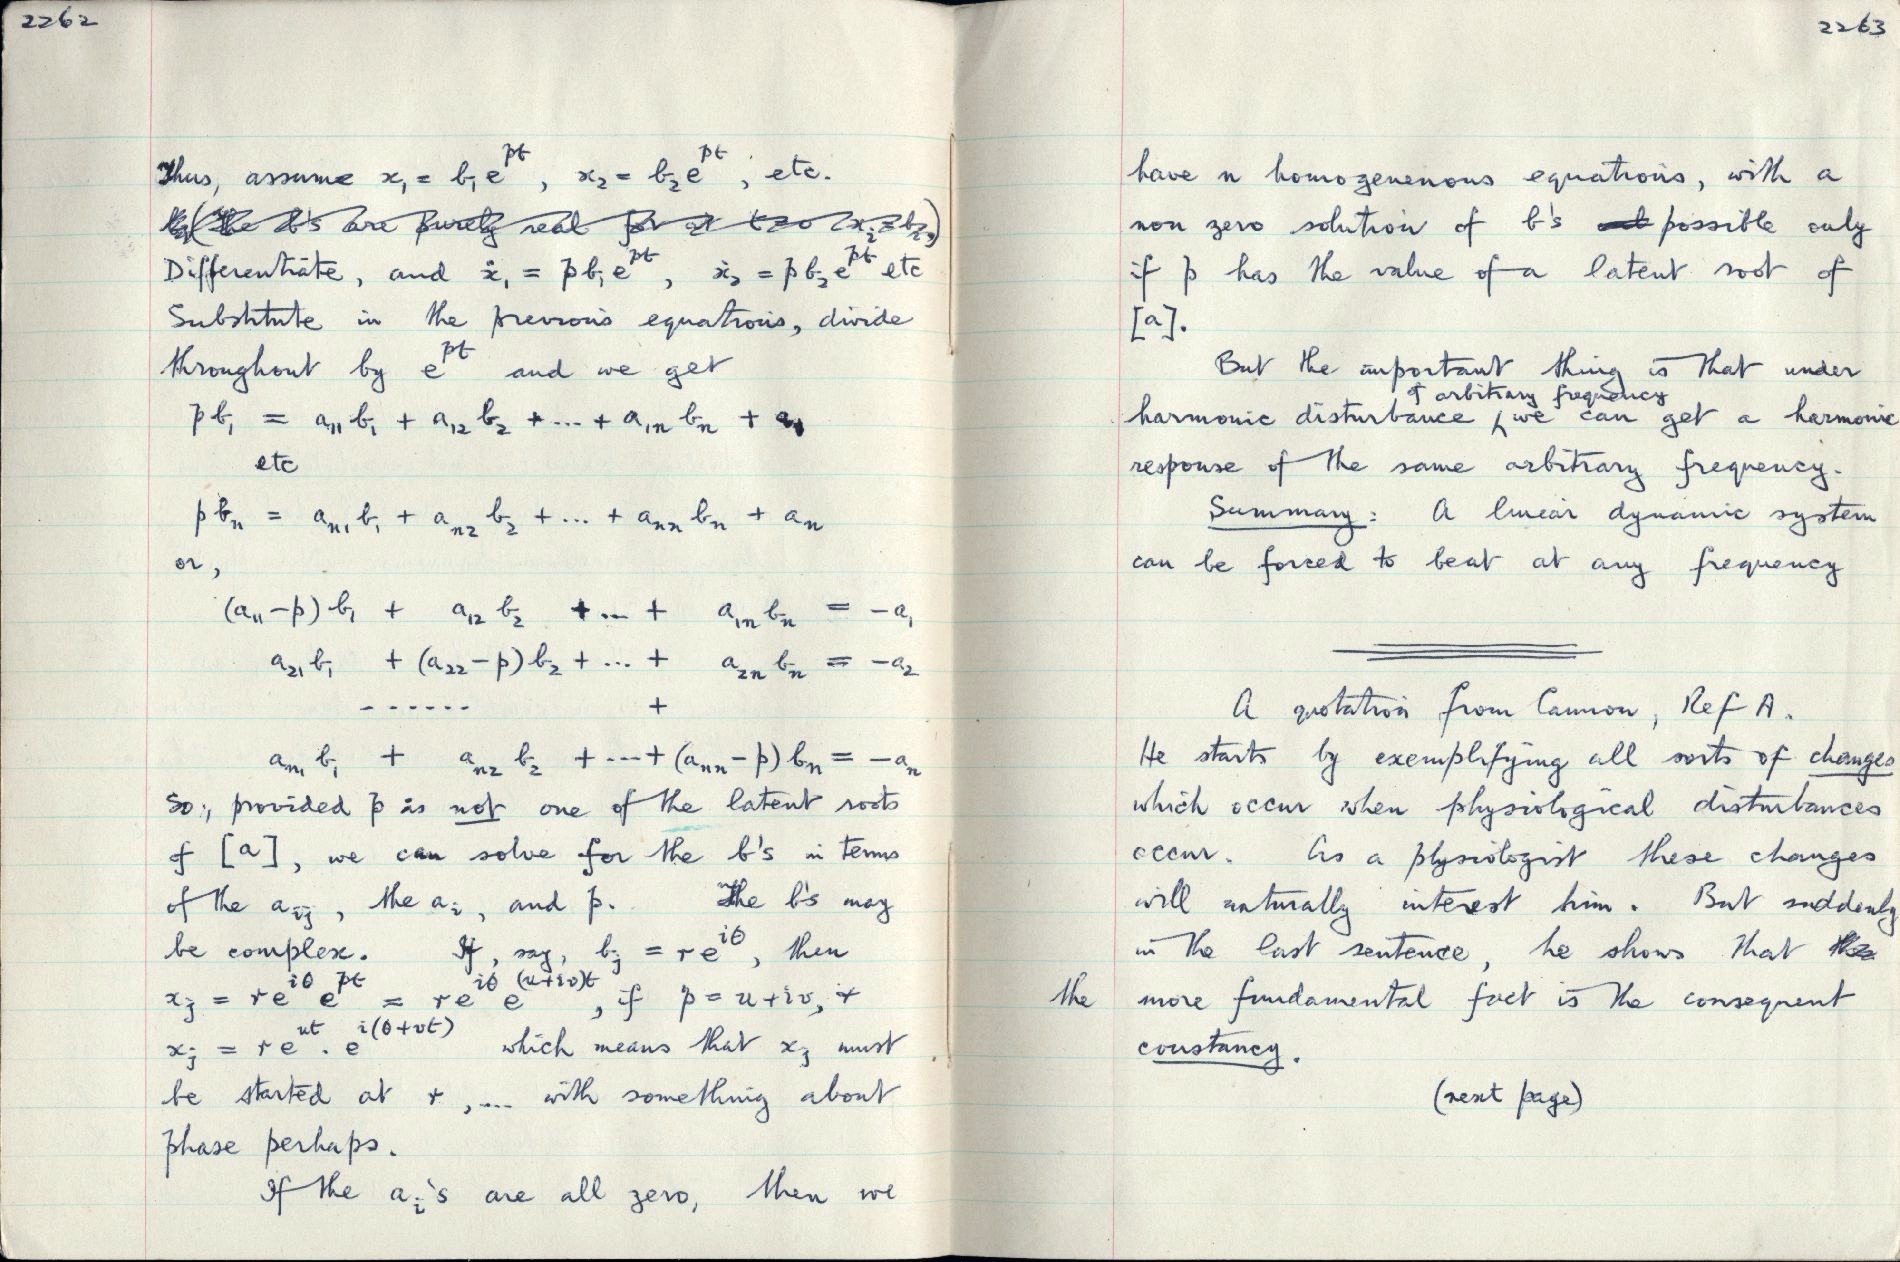 2262
Thus, assume x₁ = b₁e^pt, x₂ = b₂e^pt, etc.
(The b's are purely real for at t=0 xᵢ=bᵢ,)
Differentiate, and ẋ₁ = pb₁e^pt, ẋ₂ = pb₂e^pt etc
Substitute in the previous equations, divide
throughout by e^pt and we get
pb₁ = a₁₁b₁ + a₁₂b₂ + ... + a₁ₙbₙ + a₁
etc
pbₙ = aₙ₁b₁ + aₙ₂b₂ + ... + aₙₙbₙ + aₙ
or,
(a₁₁-p)b₁ + a₁₂b₂ + ... + a₁ₙbₙ = -a₁
a₂₁b₁ + (a₂₂-p)b₂ + ... + a₂ₙbₙ = -a₂
. . . . . . +
aₙ₁b₁ + aₙ₂b₂ + ... + (aₙₙ-p)bₙ = -aₙ
So, provided p is not one of the latent roots
of [a], we can solve for the b's in terms
of the aᵢⱼ, the aᵢ, and p. The b's may
be complex. If, say, bⱼ = re^iθ, then
xⱼ = re^iθ e^pt = re^iθ e^(u+iv)t, if p = u+iv, +
xⱼ = re^ut . e^i(θ+vt) which means that xⱼ must
be started at r, .... with something about
phase perhaps.
If the aᵢ's are all zero, then we
2263
have n homogenenous equations, with a
non zero solution of b's possible only
if p has the value of a latent root of
[a].
But the important thing is that under
of arbitrary frequency
harmonic disturbance, we can get a harmonic
response of the same arbitrary frequency.
Summary: A linear dynamic system
can be forced to beat at any frequency
A quotation from Cannon, Ref A.
He starts by exemplifying all sorts of changes
which occur when physiological disturbances
occur. As a physiologist these changes
will naturally interest him. But suddenly
in the last sentence, he shows that
the more fundamental fact is the consequent
constancy.
(next page)